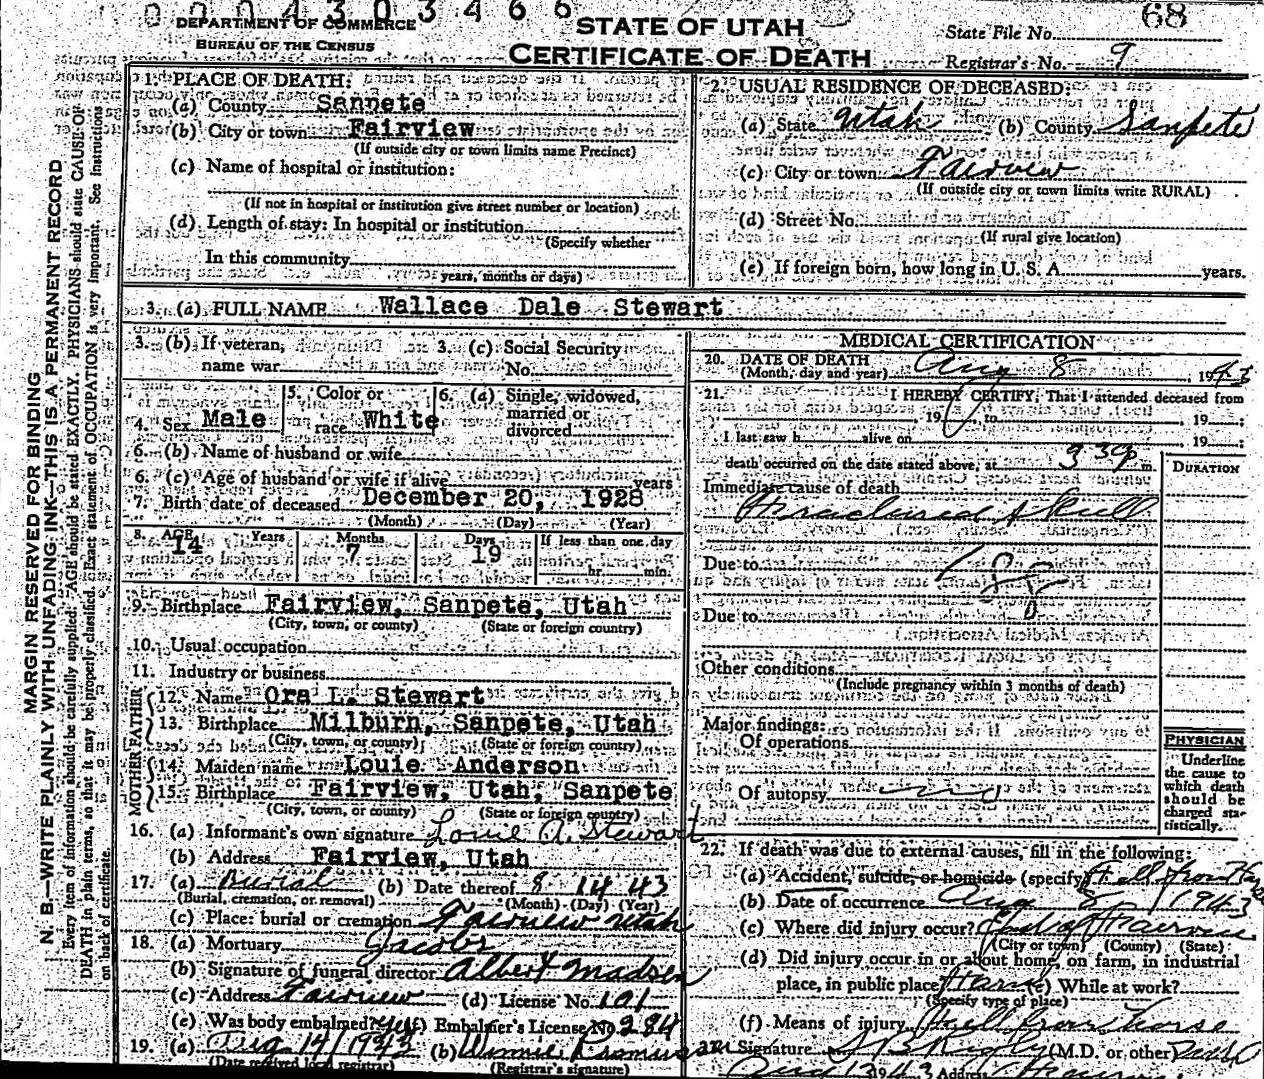 0004303466
DEPARTMENT OF COMMERCE
BUREAU OF THE CENSUS
STATE OF UTAH
CERTIFICATE OF DEATH
68
State File No.
Registrar's No. 9
MARGIN RESERVED FOR BINDING
N. B.—WRITE PLAINLY WITH UNFADING INK—THIS IS A PERMANENT RECORD
Every item of information should be carefully supplied. AGE should be stated EXACTLY. PHYSICIANS should state CAUSE OF
DEATH in plain terms, so that it may be properly classified. Exact statement of OCCUPATION is very important. See Instructions
on back of certificate.
1. PLACE OF DEATH:
(a) County Sanpete
(b) City or town Fairview
(If outside city or town limits name Precinct)
(c) Name of hospital or institution:
(If not in hospital or institution give street number or location)
(d) Length of stay: In hospital or institution
(Specify whether
In this community
years, months or days)
2. USUAL RESIDENCE OF DECEASED:
(a) State Utah (b) County Sanpete
(c) City or town Fairview
(If outside city or town limits write RURAL)
(d) Street No.
(If rural give location)
(e) If foreign born, how long in U. S. A. years.
3. (a) FULL NAME Wallace Dale Stewart
3. (b) If veteran, name war
3. (c) Social Security No.
4. Sex Male
5. Color or race White
6. (a) Single, widowed, married or divorced
6. (b) Name of husband or wife
6. (c) Age of husband or wife if alive years
7. Birth date of deceased December 20, 1928
(Month) (Day) (Year)
8. AGE Years Months Days If less than one day
14 7 19 hr. min.
9. Birthplace Fairview, Sanpete, Utah
(City, town, or county) (State or foreign country)
10. Usual occupation
11. Industry or business
FATHER
12. Name Ora L. Stewart
13. Birthplace Milburn, Sanpete, Utah
(City, town, or county) (State or foreign country)
MOTHER
14. Maiden name Louie Anderson
15. Birthplace Fairview, Utah, Sanpete
(City, town, or county) (State or foreign country)
16. (a) Informant's own signature Louie A. Stewart
(b) Address Fairview, Utah
17. (a) Burial (b) Date thereof 8 14 43
(Burial, cremation, or removal) (Month) (Day) (Year)
(c) Place: burial or cremation Fairview Utah
18. (a) Mortuary Jacobs
(b) Signature of funeral director Albert Madsen
(c) Address Fairview (d) License No. 191
(e) Was body embalmed? yes (f) Embalmer's License No. 284
19. (a) Aug 14/1943 (b) Winnie
(Date received local registrar) (Registrar's signature)
MEDICAL CERTIFICATION
20. DATE OF DEATH
(Month, day and year) Aug 8, 1943
21. I HEREBY CERTIFY, That I attended deceased from
, 19 , to , 19 ;
I last saw h alive on , 19 ;
death occurred on the date stated above, at 3 30p m.
DURATION
Immediate cause of death
Fractured skull
Due to
Due to
Other conditions
(Include pregnancy within 3 months of death)
Major findings:
Of operations
Of autopsy no
PHYSICIAN
Underline
the cause to
which death
should be
charged sta-
tistically.
22. If death was due to external causes, fill in the following:
(a) Accident, suicide, or homicide (specify) Fell from
(b) Date of occurrence Aug 8 1943
(c) Where did injury occur? East of Fairview
(City or town) (County) (State)
(d) Did injury occur in or about home, on farm, in industrial
place, in public place? While at work?
(Specify type of place)
(f) Means of injury Fell from horse
Signature (M.D. or other)
1943 Address